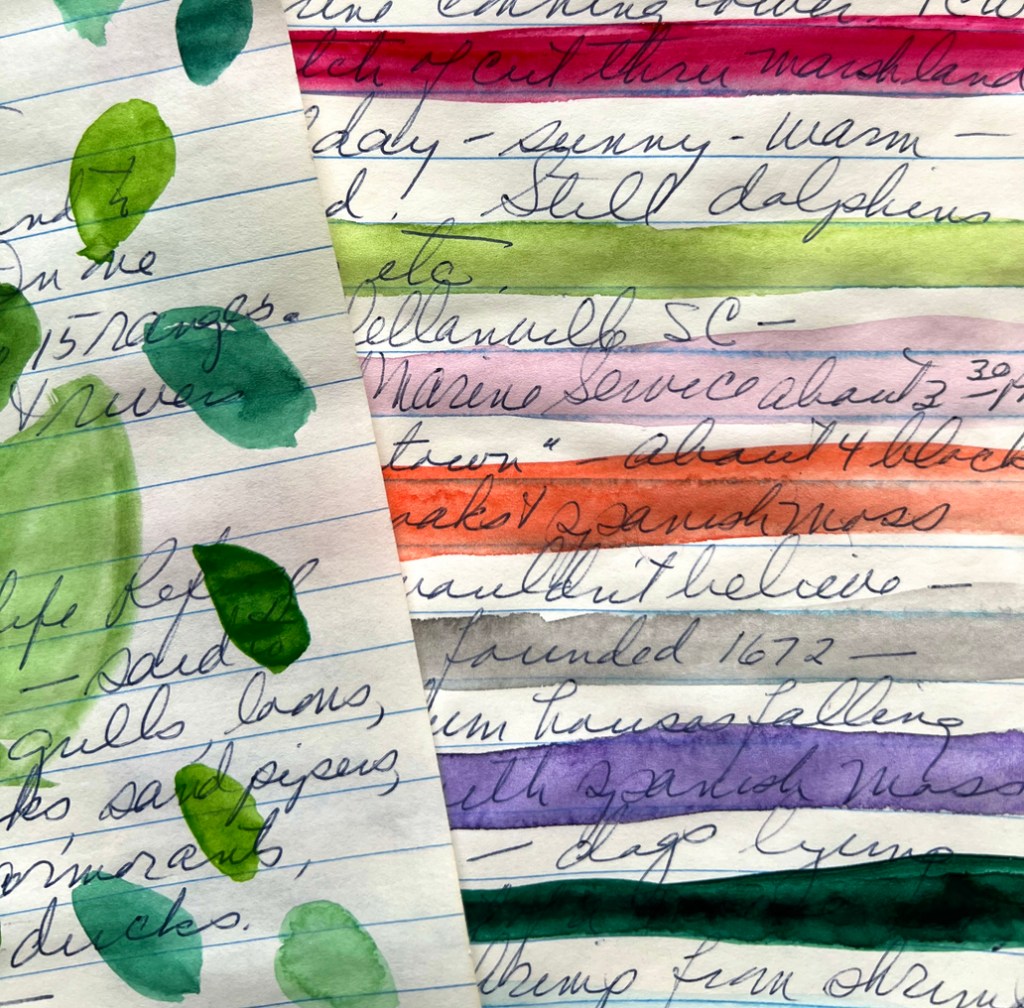 and
In me
15 ranges.
& rivers
life Ref
— said
gulls, loons,
sandpipers,
cormorants,
ducks.
of cut thru marshland
day - sunny - warm —
d. Still dolphins
etc.
McClellanville SC —
Marine Service about 3 30
town" — about 4 block
oaks & spanish moss
wouldn't believe —
founded 1672 —
houses falling
with spanish moss
— dogs lying
from shrimp